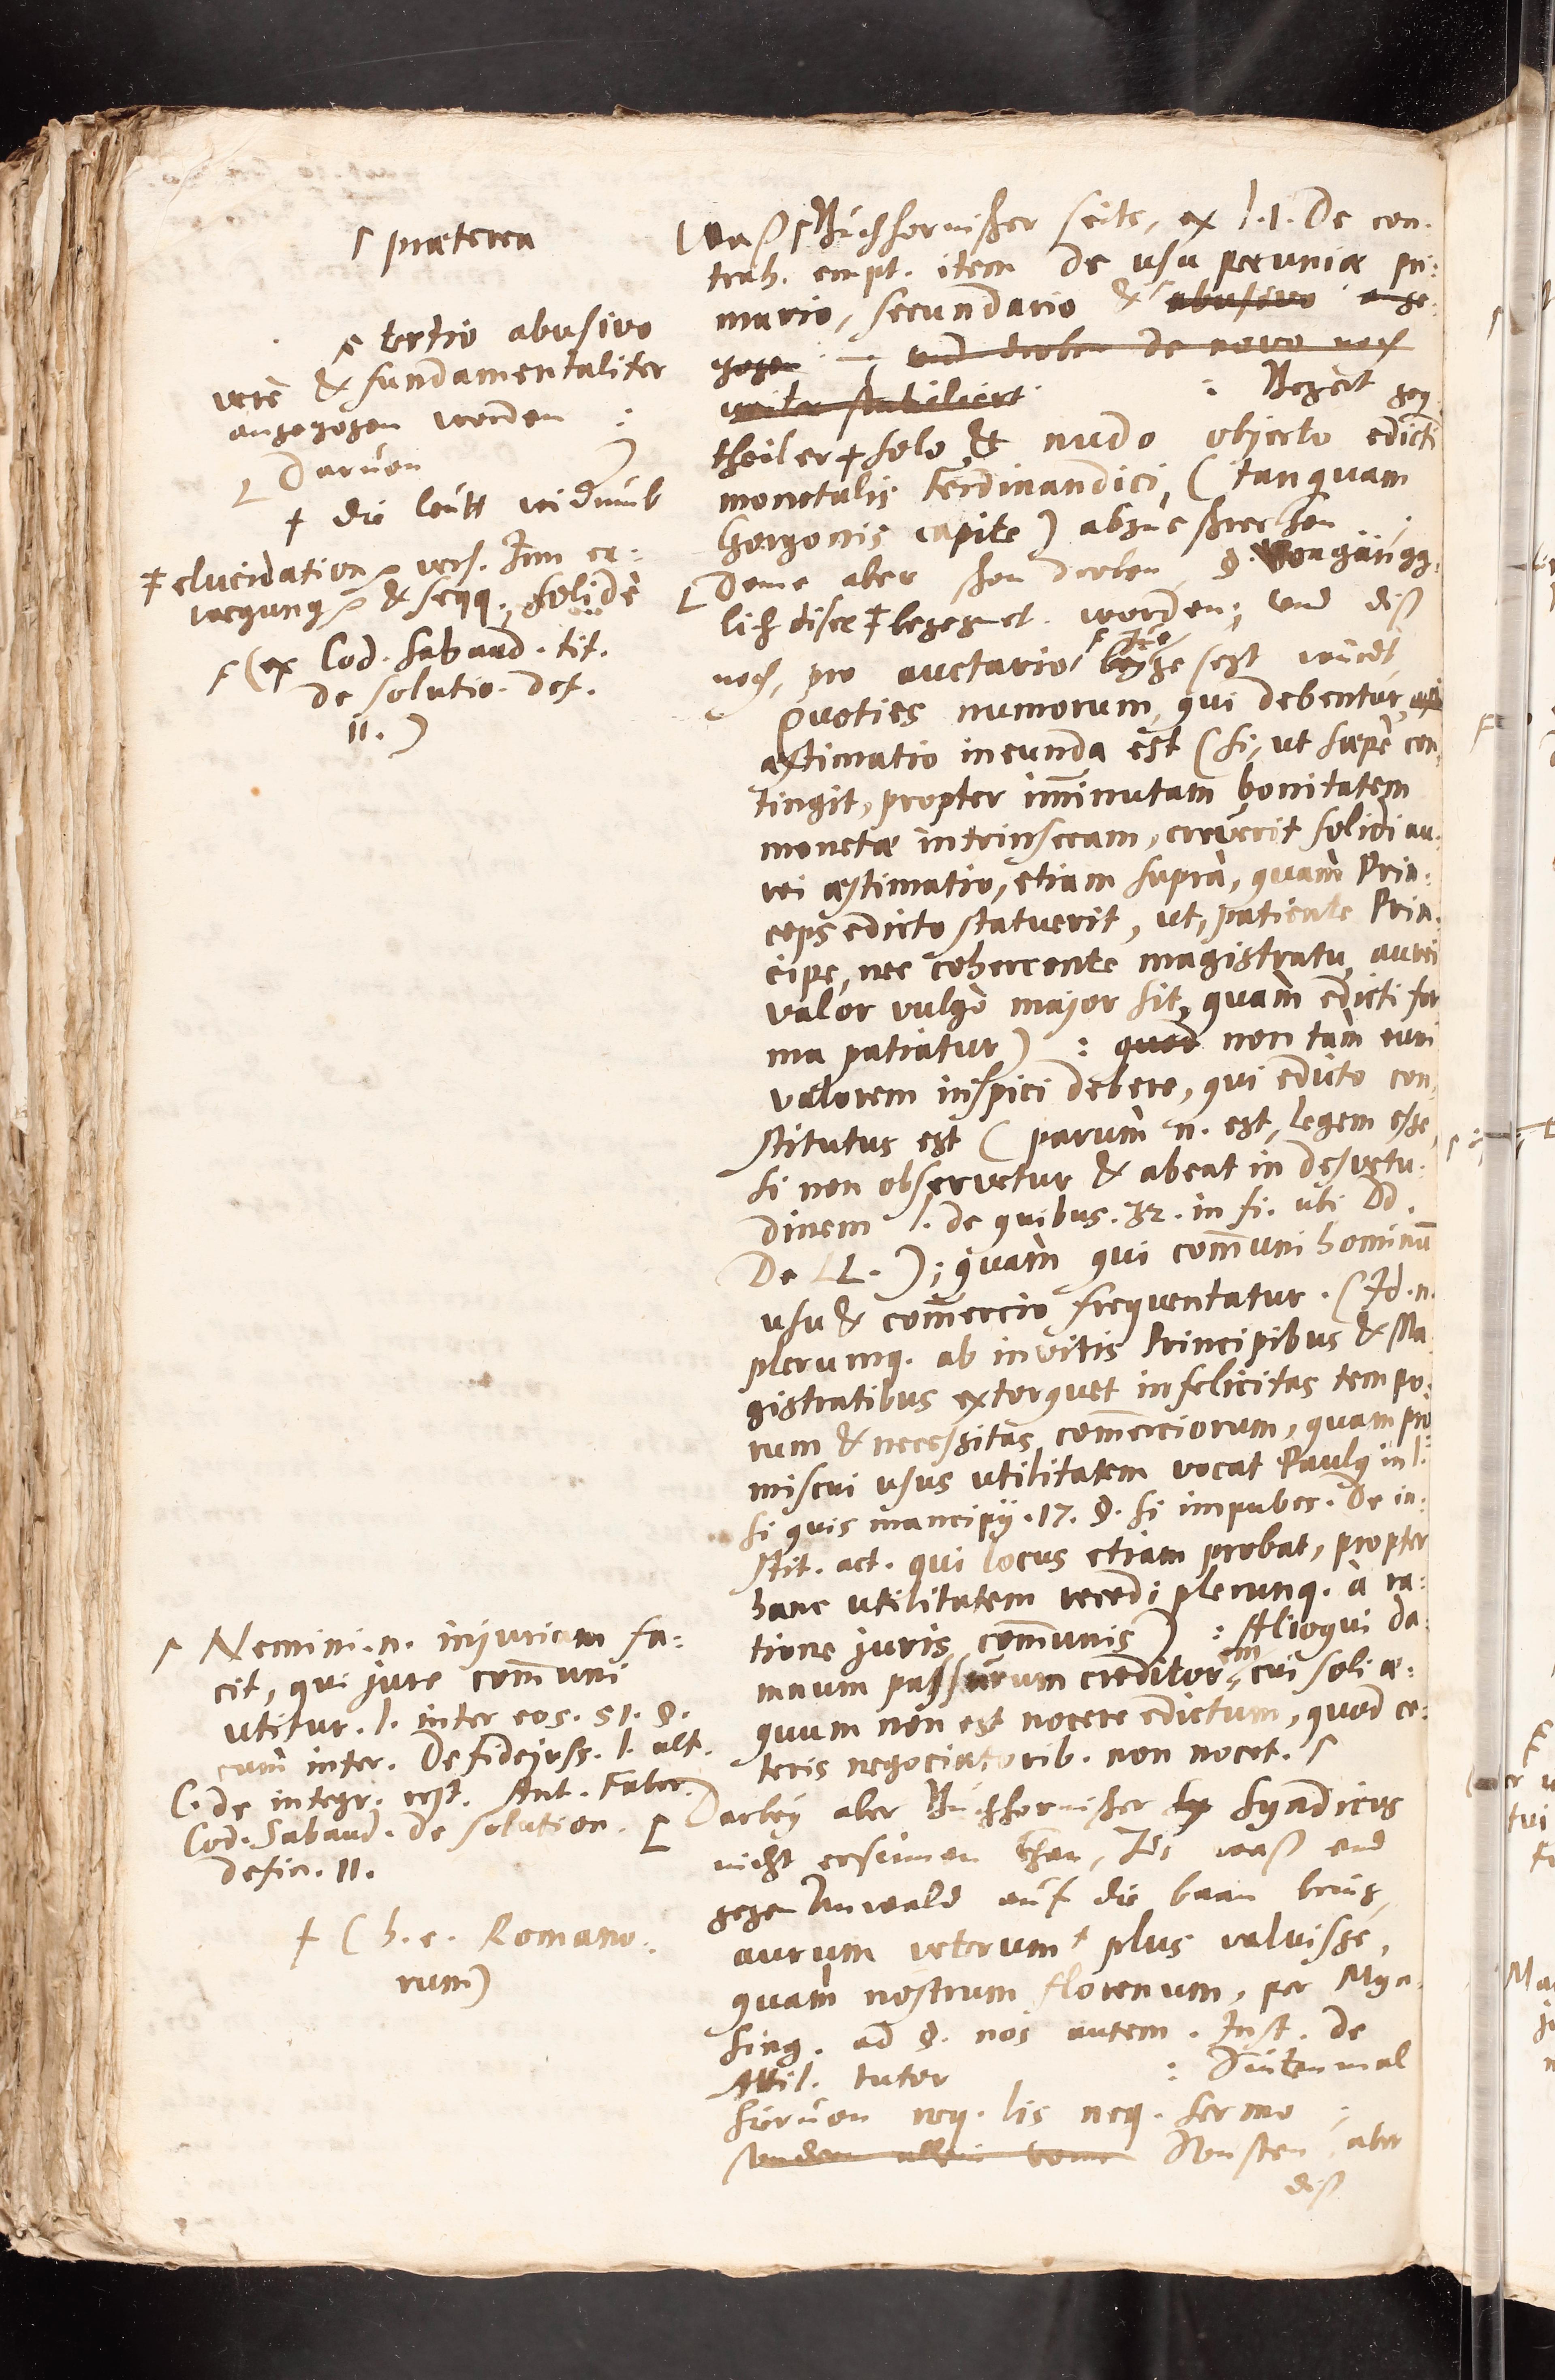 ┌ præterea
┌ tertio abusivo
verè & fundamentaliter
angezogen worden :
└ Daruon
† die leütt
‡ elucidation vers. Jnn er:
wegung & seqq. solidè
┌ (ex Cod. Sabaud. tit.
de solutio. def.
11.)
┌ Nemini. n. injuriam fa:
cit, qui jure com̄uni
utitur. l. inter eos. 51. §.
cum inter. De fidejuss. l. ult.
C. de integr. rest. Ant. Faber.
Cod. Sabaud. de solution.
defin. 11.
† (h. e. Romano:
rum)
Waß ┌ Buchhornischer seits, ex l. 1. De con.
trah. empt. item de usu pecuniæ pri:
mario, secundario & ┌ abusivo ange:
zogen und droben de novo noch
weiter stabiliert : Begert geg
theiler † solo & nudo objecto edicti
monetalis Ferdinandici, (tanquam
Gorgonis capite) abzuschrecken.
└ Deme aber schon droben, §.
lich diser ‡ begegnet worden; und diß
noch, pro auctario ┌ beygesezt würdt,
Quoties numorum, qui debentur,
æstimatio ineunda est (si, ut sæpè con:
tingit, propter im̄inutam bonitatem
monetæ intrinsecam, creverit solidi au:
rei æstimatio, etiam suprà, quàm Prin:
ceps edicto statuerit, ut, patiente Prin:
cipe, nec cohercente magistratu, aurei
valor vulgò major sit, quàm edicti for
ma patiatur) : quod non tàm euri
valorem inspici debere, qui edicto con:
stitutus est (parùm n. est, legem esse,
si non observetur & abeat in desvetu:
dinem l. de quibus. 32. in fi. ubi Dd.
De LL.); quàm qui com̄uni hominū
usu & com̄ercio frequentatur. (Id. n.
plerumq. ab invitis Principibus & Ma
gistratibus extorquet infelicitas tempo:
rum & necessitas com̄erciorum, quam pro
miscui usus utilitatem vocat Paulq in l.
si quis mancipij. 17. §. si impubes. De in:
stit. act. qui locus etiam probat, propter
hanc utilitatem recedi plerunq. à ra:
tione juris com̄unis) : Alioqui da:
mnum passurum creditorem, cui soli æ:
quum non est nocere edictum, quod ce:
teris negociatorib. non nocet. ┌
└ Darbey aber Buchhornischer Syndicus
nicht ersinnen khan, Zu waß end
gegen Anwald auf die baan bring,
aurum veterum † plus valuisse,
quàm nostrum florenum, per Myn:
sing. ad §. nos autem. Inst. de
Attil. tutor : Sintenmal
hieruon neq. lis neq. sermo :
sondern allein vom Sonsten aber
diß